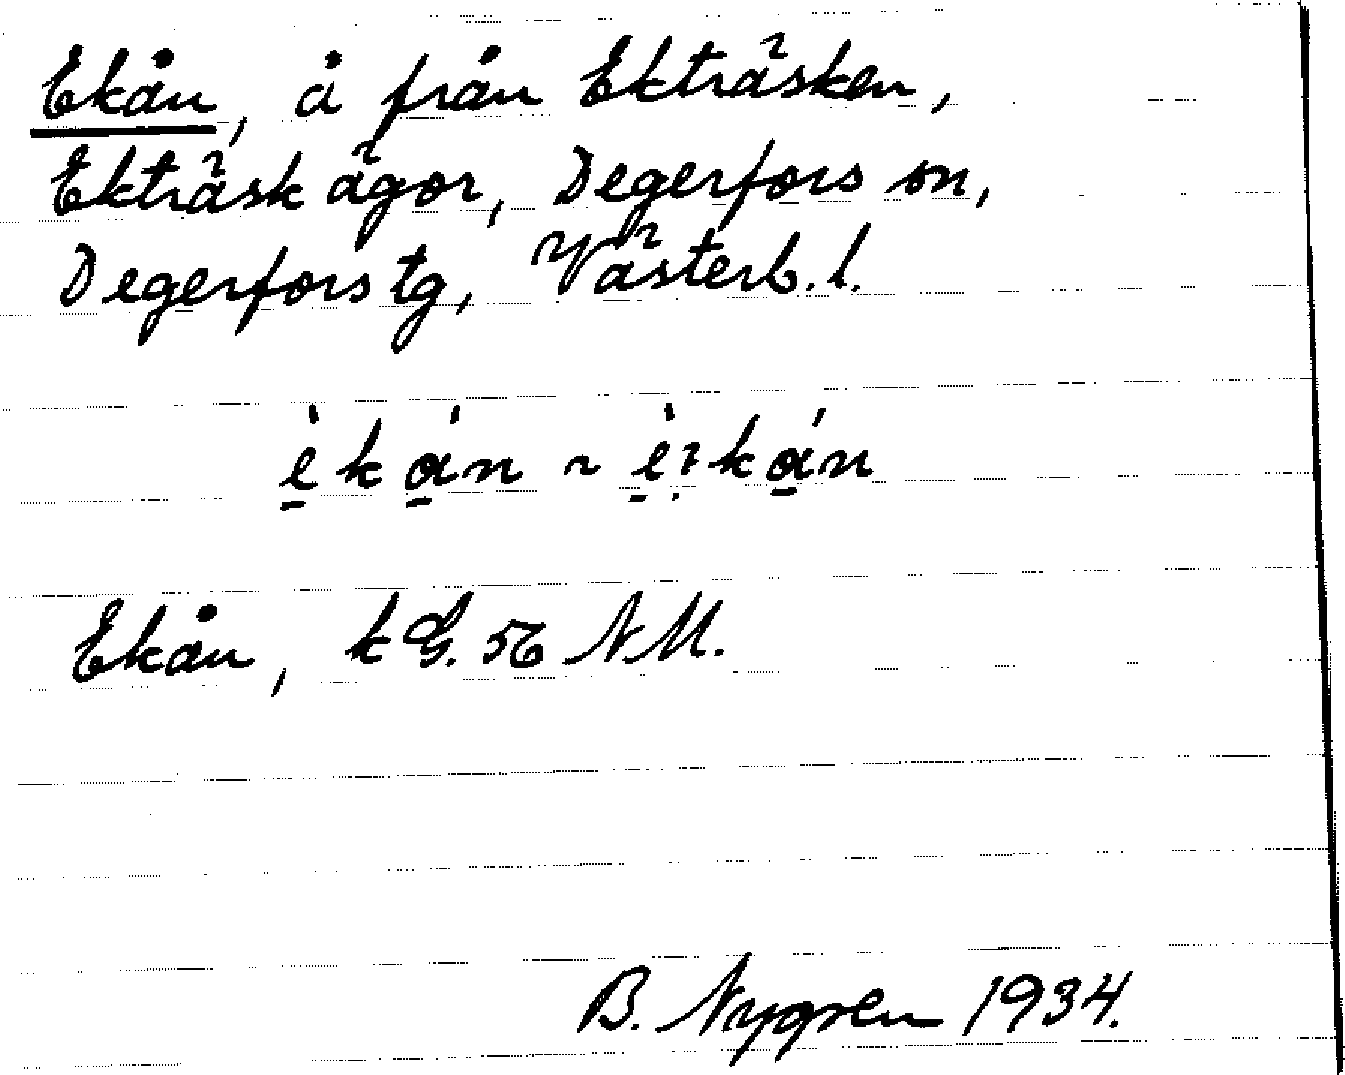 Ekån, å från Ekträsken,
Ekträsk ägor, Degerfors sn,
Degerfors tg, Västerb. l.
èkán ~ è:kán
Ekån, kG. 56 NM.
B. Nygren 1934.